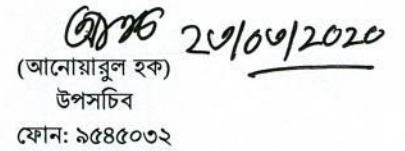 ২৩/০৩/2020
(আনোয়ারুল হক)
উপসচিব
ফোন: ৯৫৪৫০৩২